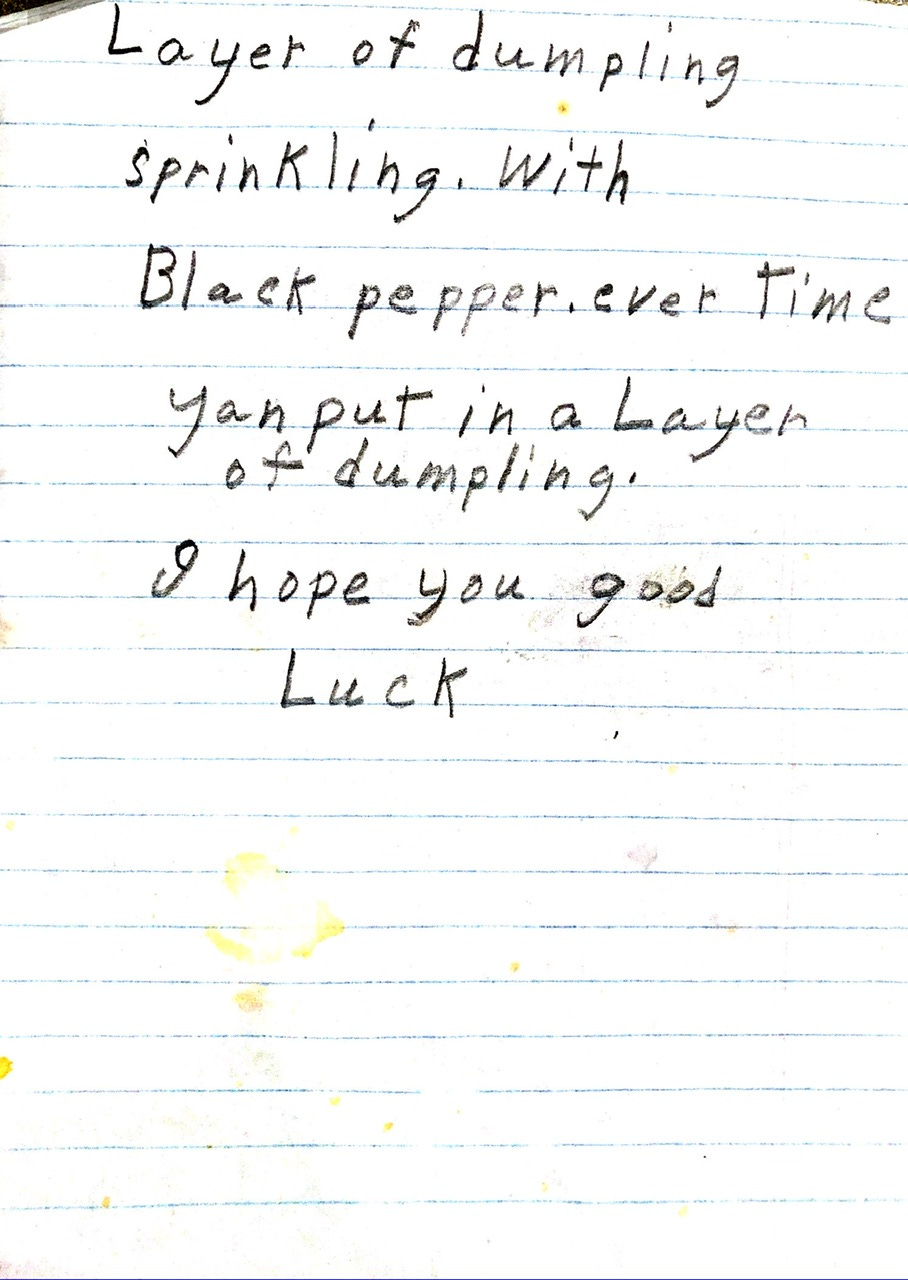 Layer of dumpling
sprinkling. With
Black pepper. ever Time
yan put in a Layer
of dumpling.
I hope you good
Luck